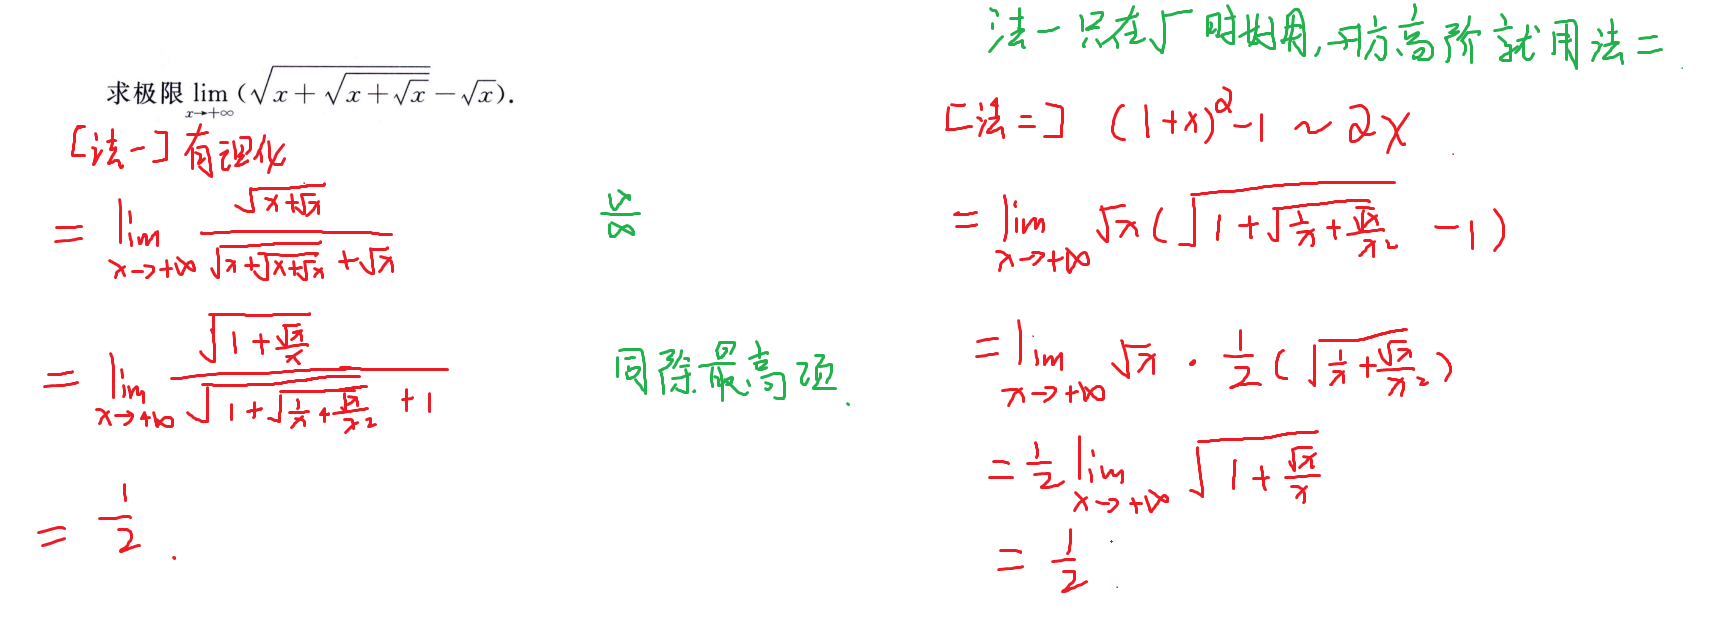 求极限 lim_{x→+∞} (√(x+√(x+√x)) − √x).
[法一] 有理化
= lim_{x→+∞} √(x+√x) / (√(x+√(x+√x)) + √x)
∞/∞
= lim_{x→+∞} √(1+√x/x) / (√(1+√(1/x+√x/x²)) + 1)
同除最高项.
= 1/2.
法一只在√时好用,开方高阶就用法二.
[法二] (1+x)^2 −1 ~ 2x
= lim_{x→+∞} √x (√(1+√(1/x+√x/x²)) − 1)
= lim_{x→+∞} √x · 1/2 (√(1/x+√x/x²))
= 1/2 lim_{x→+∞} √(1+√x/x)
= 1/2